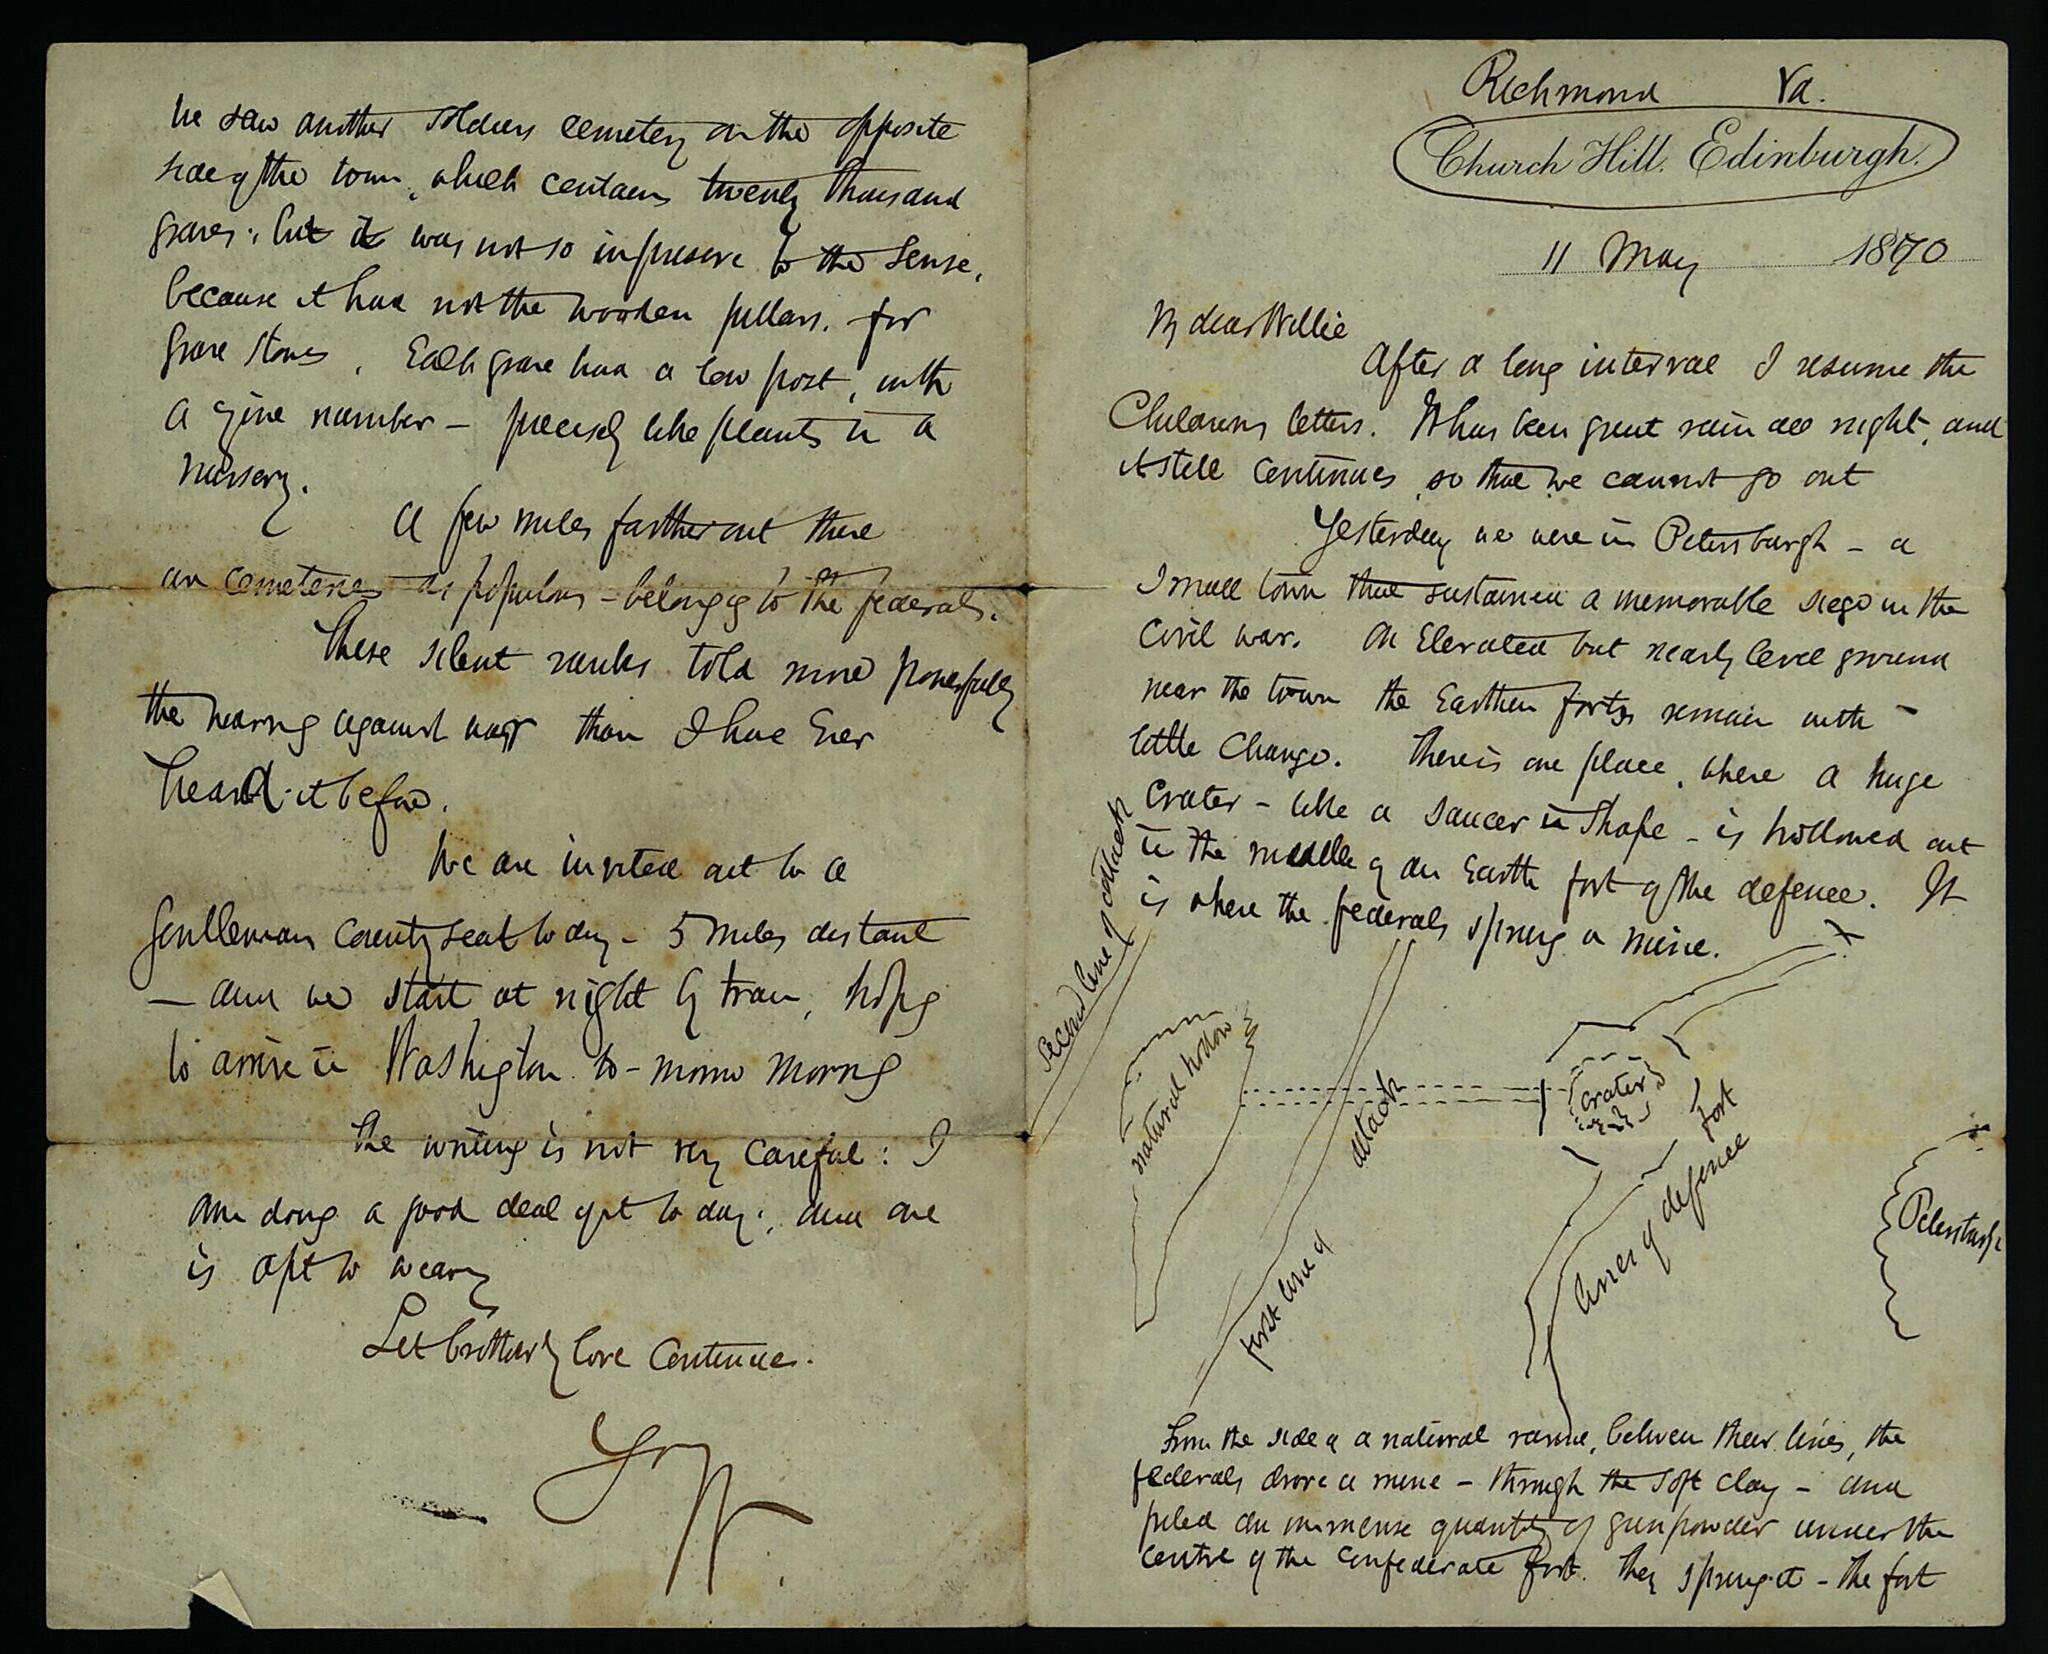 Richmond Va.
Church Hill. Edinburgh.
11 May 1870
My dear Willie
After a long interval I resume the
Childrens letters. It has been great rain all night, and
it still continues, so that we cannot go out
Yesterday we were in Petersburgh - a
small town that sustained a memorable siege in the
Civil war. On Elevated but nearly level ground
near the town the Earthen forts remain with
little change. There is one place, where a huge
crater - like a saucer in shape - is hollowed out
in the middle of an Earth fort of the defence. It
is where the federals sprung a mine.
Second line of attack
natural hollow
first line of attack
crater
fort
lines of defence
Petersburgh
From the side of a natural ravine, between their lines, the
federals drove a mine - through the soft clay - and
piled an immense quantity of gunpowder under the
centre of the confederate fort. They sprung it - the fort
We saw another soldiers cemetery on the opposite
side of the town, which contains twenty thousand
graves; but it was not so impressive to the sense,
because it had not the wooden pillars for
grave stones. Each grave had a low post, with
a number - precisely like plants in a
nursery.
A few miles farther out there
are cemeteries as populous - belonging to the federals.
These silent ranks told more powerfully
the against war than I have Ever
heard it before.
We are invited out to a
Gentlemans County seat to day - 5 miles distant
- and we start at night by train, hoping
to arrive in Washington to-morrow morng
The writing is not very careful: I
am doing a good deal of it to day; and one
is apt to weary
Let brotherly love Continue.